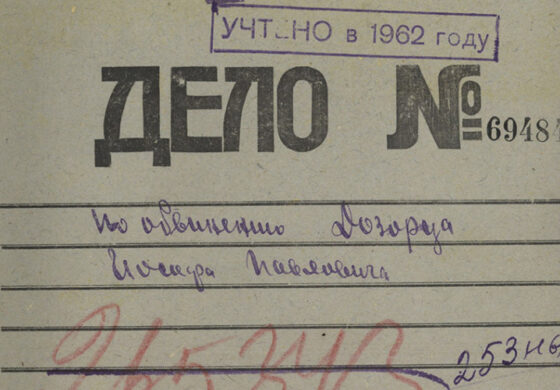 УЧТЕНО в 1962 году
ДЕЛО № 69484
по обвинению Дозорца
Иосифа Павловича
253нв